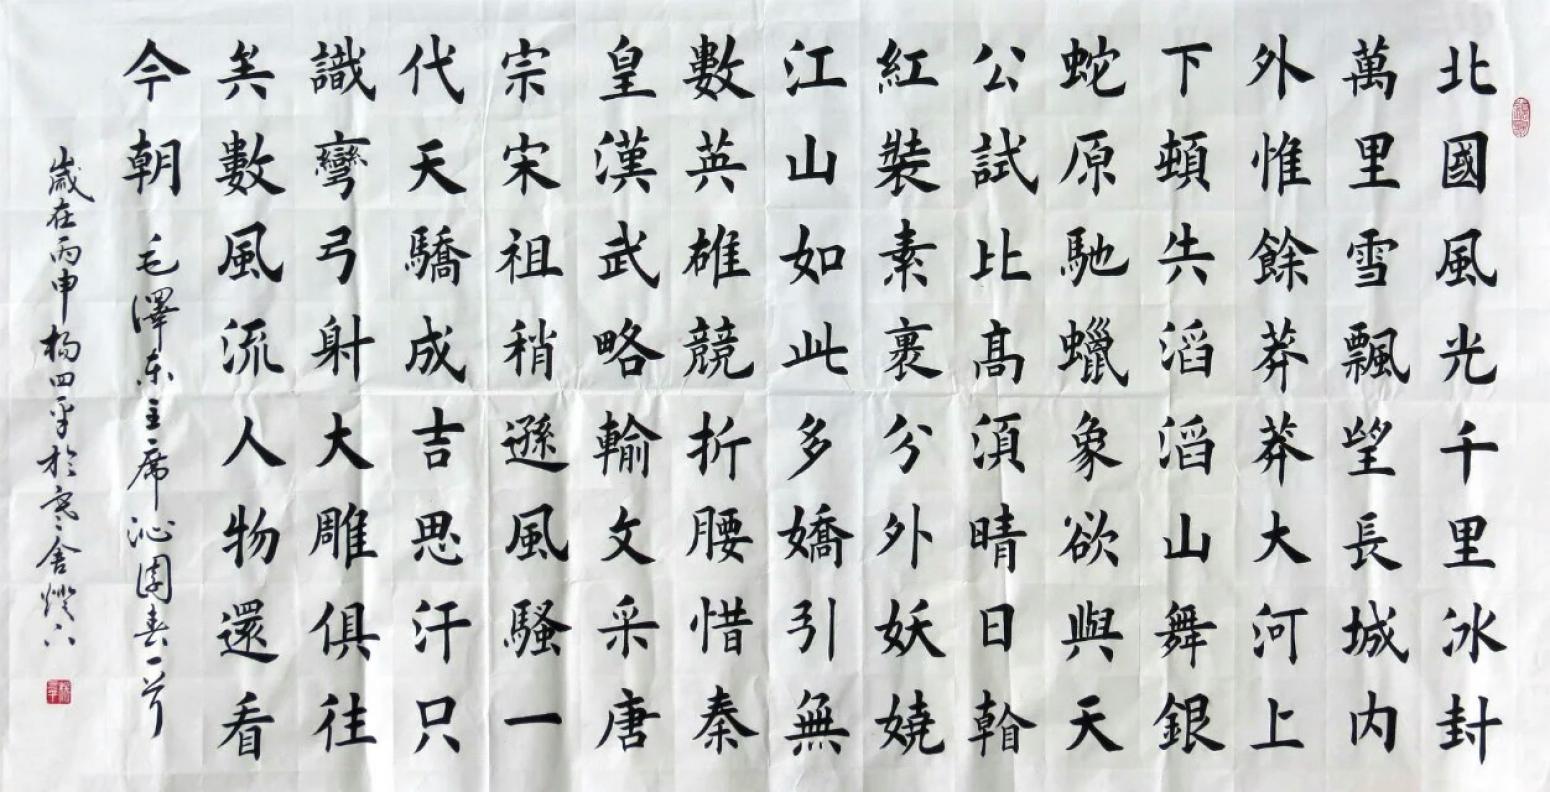 北國風光千里冰封
萬里雪飄望長城内
外惟餘莽莽大河上
下頓失滔滔山舞銀
蛇原馳蠟象欲與天
公試比髙湏晴日
紅裝素裹分外妖嬈
江山如此多嬌引無
數英雄競折腰惜秦
皇漢武略輸文采唐
宗宋祖稍遜風騷一
代天驕成吉思汗只
識彎弓射大雕俱往
矣數風流人物還看
今朝 毛澤東主席沁園春一首
歲在丙申楊四平於寒舍燈下